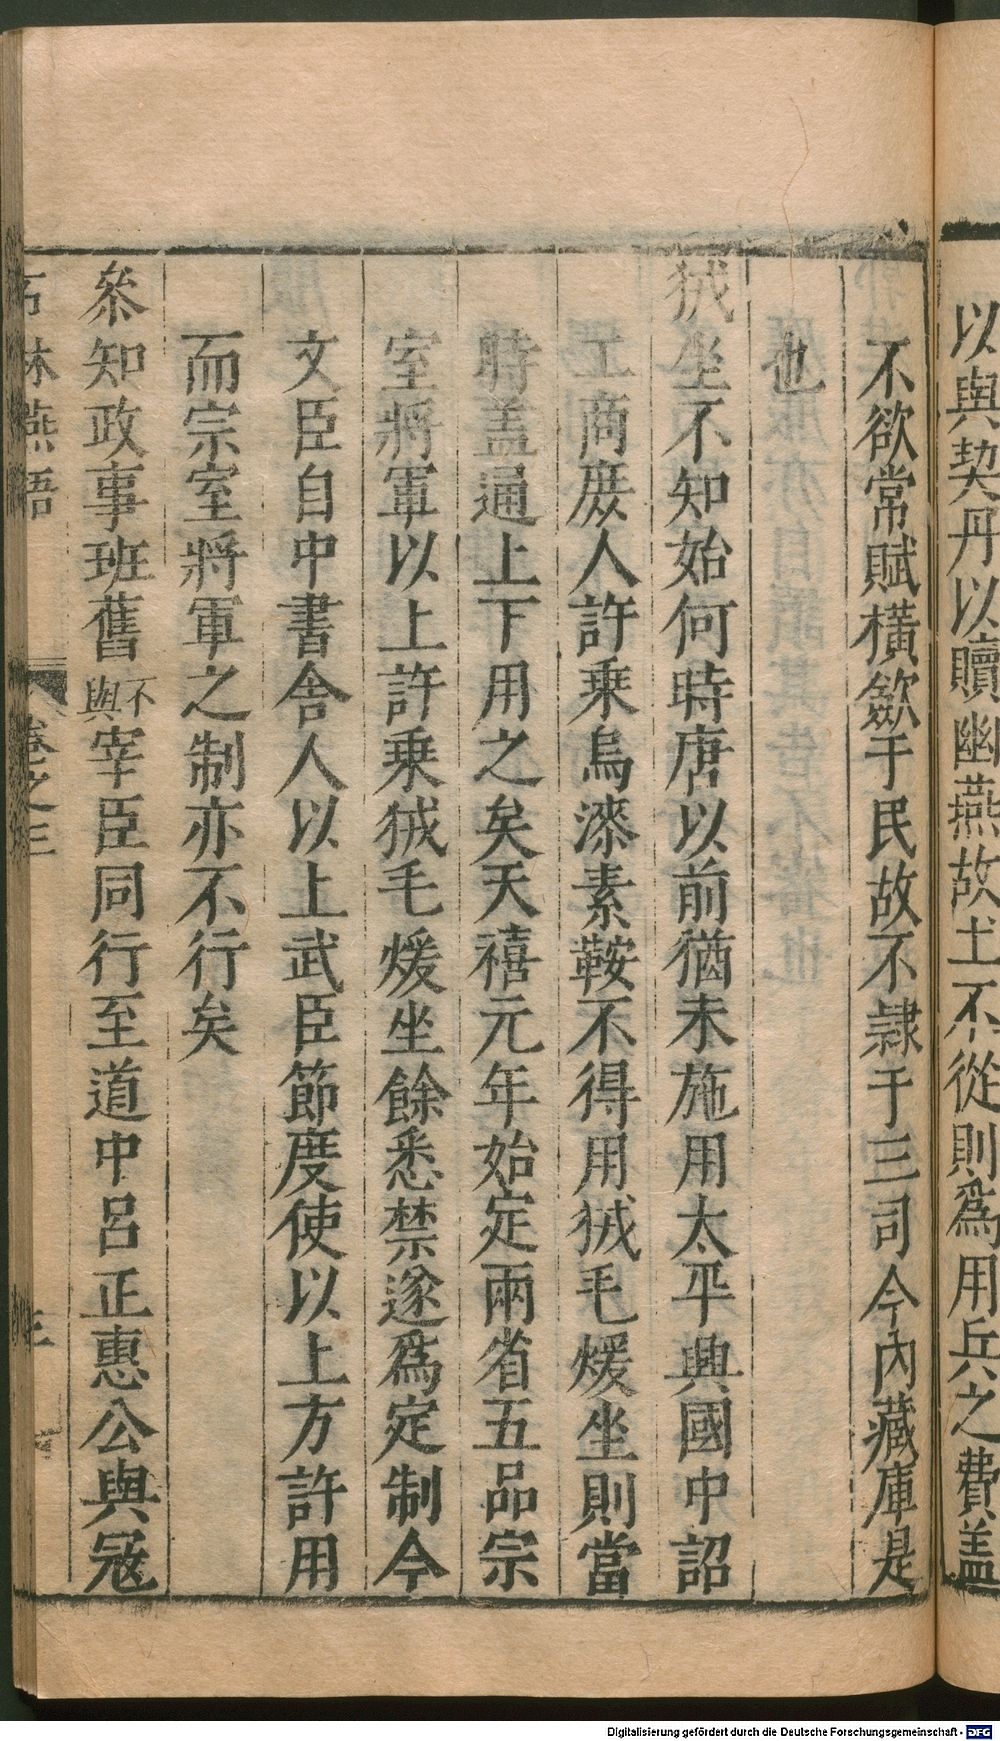 以與契丹以贖幽燕故土不從則爲用兵之費盖
不欲常賦橫歛于民故不隷于三司今內藏庫是
也
狨坐不知始何時唐以前猶未施用太平興國中詔
工商庻人許乗烏漆素鞍不得用狨毛煖坐則當
時盖通上下用之矣天禧元年始定兩省五品宗
室將軍以上許乗狨毛煖坐餘悉禁遂爲定制今
文臣自中書舎人以上武臣節度使以上方許用
而宗室將軍之制亦不行矣
叅知政事班舊不與宰臣同行至道中呂正惠公與冦
石林燕語 卷之三 三
Digitalisierung gefördert durch die Deutsche Forschungsgemeinschaft - DFG